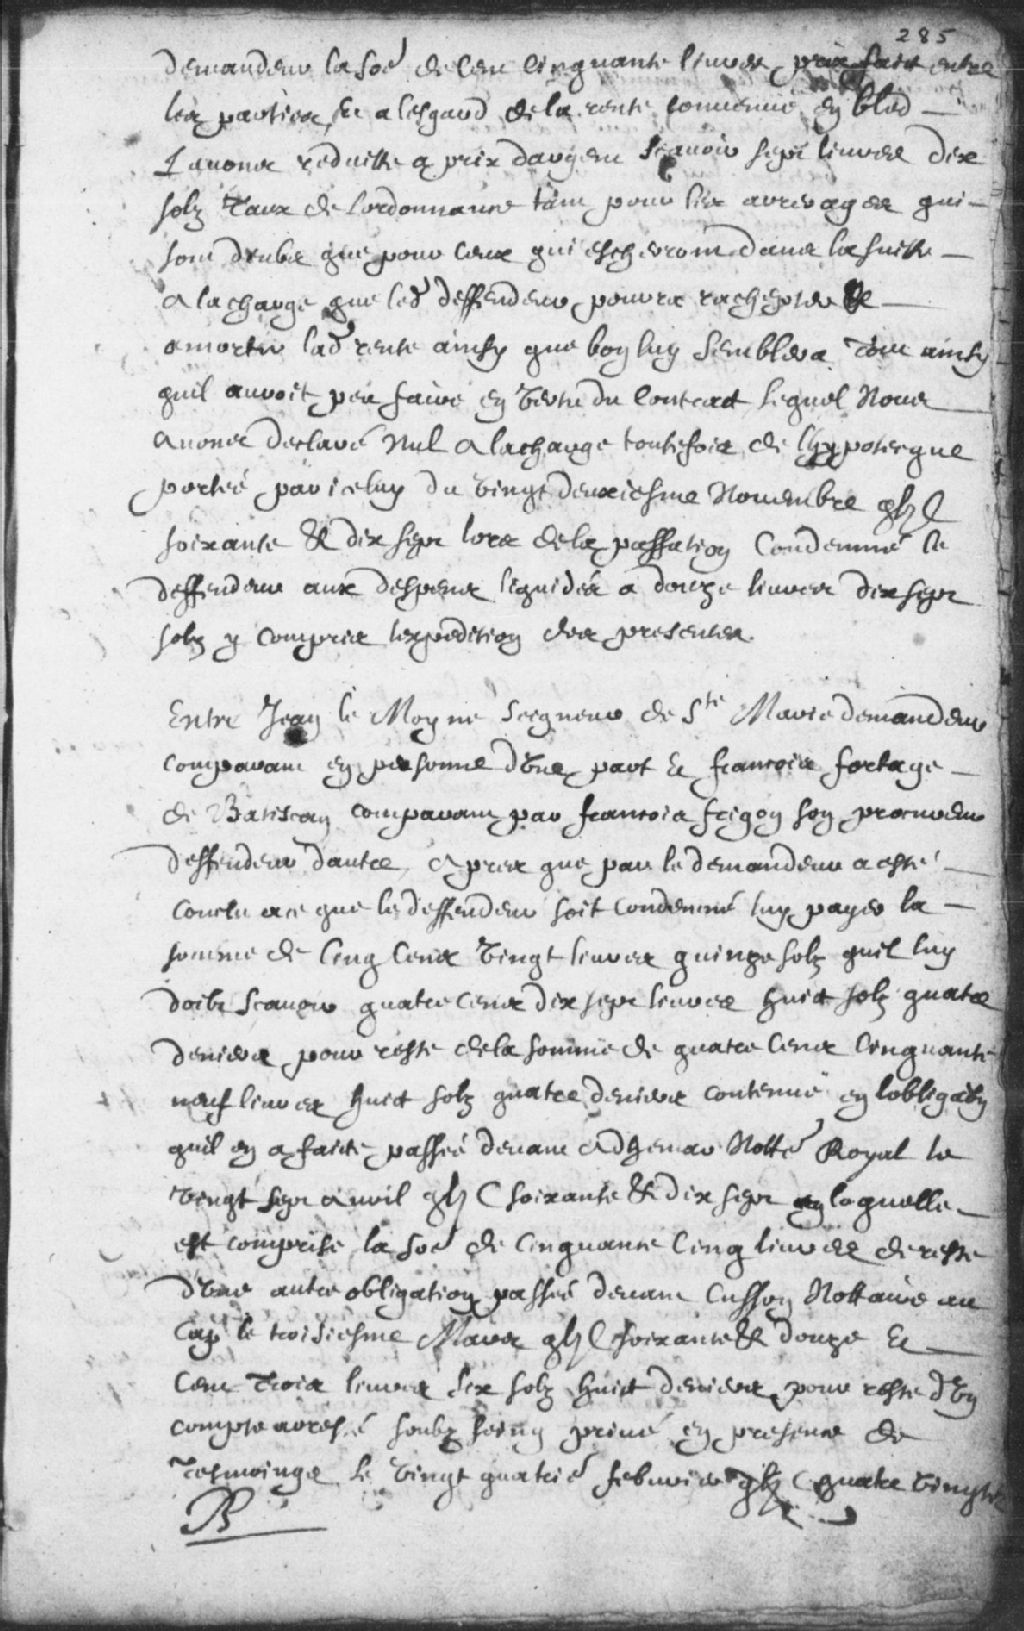 285
demandeur la soe de Cent Cinquante liures, prix fait entre
les parties, Et a lesgard de la rente conuenue en bled
Lauons reduitte a prix dargent Scauoir sept liures dix
solz Taux de lordonnance tant pour les arrerages qui
sont deubs que pour ceux qui escherront dans la suitte
a la charge que led deffendeur pourra rachepter &
amortir lad rente ainsy que bon luy semblera Tout ainsy
quil auroit peu faire en Vertu du Contract lequel Nous
auons declaré Nul a la charge toutefois de lhypotecque
portée par iceluy du Vingt deuxiesme Nouembre gbj C
soixante & dix sept lors de la passation Condemné le
deffendeur aux despens liquidés a douze liures dix sept
solz y compris lexpedition des presentes
Entre Jean le Moyne Seigneur de Ste Marie demandeur
comparant en personne d'Vne part Et francois fortage
de Batiscan comparant par francois frigon son procureur
deffendeur dautre, Apres que par le demandeur a esté
Conclu a ce que le deffendeur soit condemné luy payer la
somme de Cinq Cens Vingt liures quinze solz quil luy
doibt Scauoir quatre Cens dix sept liures huict solz quatre
deniers pour reste de la somme de quatre Cens Cinquante
neuf liures huict solz quatre deniers contenue en lobligaon
quil en a faite passée deuant Adhemar Notte Royal le
Vingt sept auril gbj C soixante & dix sept en laquelle
est comprise la soe de Cinquante Cinq liures de reste
d'Vne autre obligation passée deuant Cusson Nottaire au
Cap le troisiesme Mars gbj C soixante & douze Et
Cent Trois liures six solz huict deniers pour reste d'Vn
compte arresté soubz seing priué en presence de
Tesmoings le Vingt quatrie feburier gbj C quatre Vingts